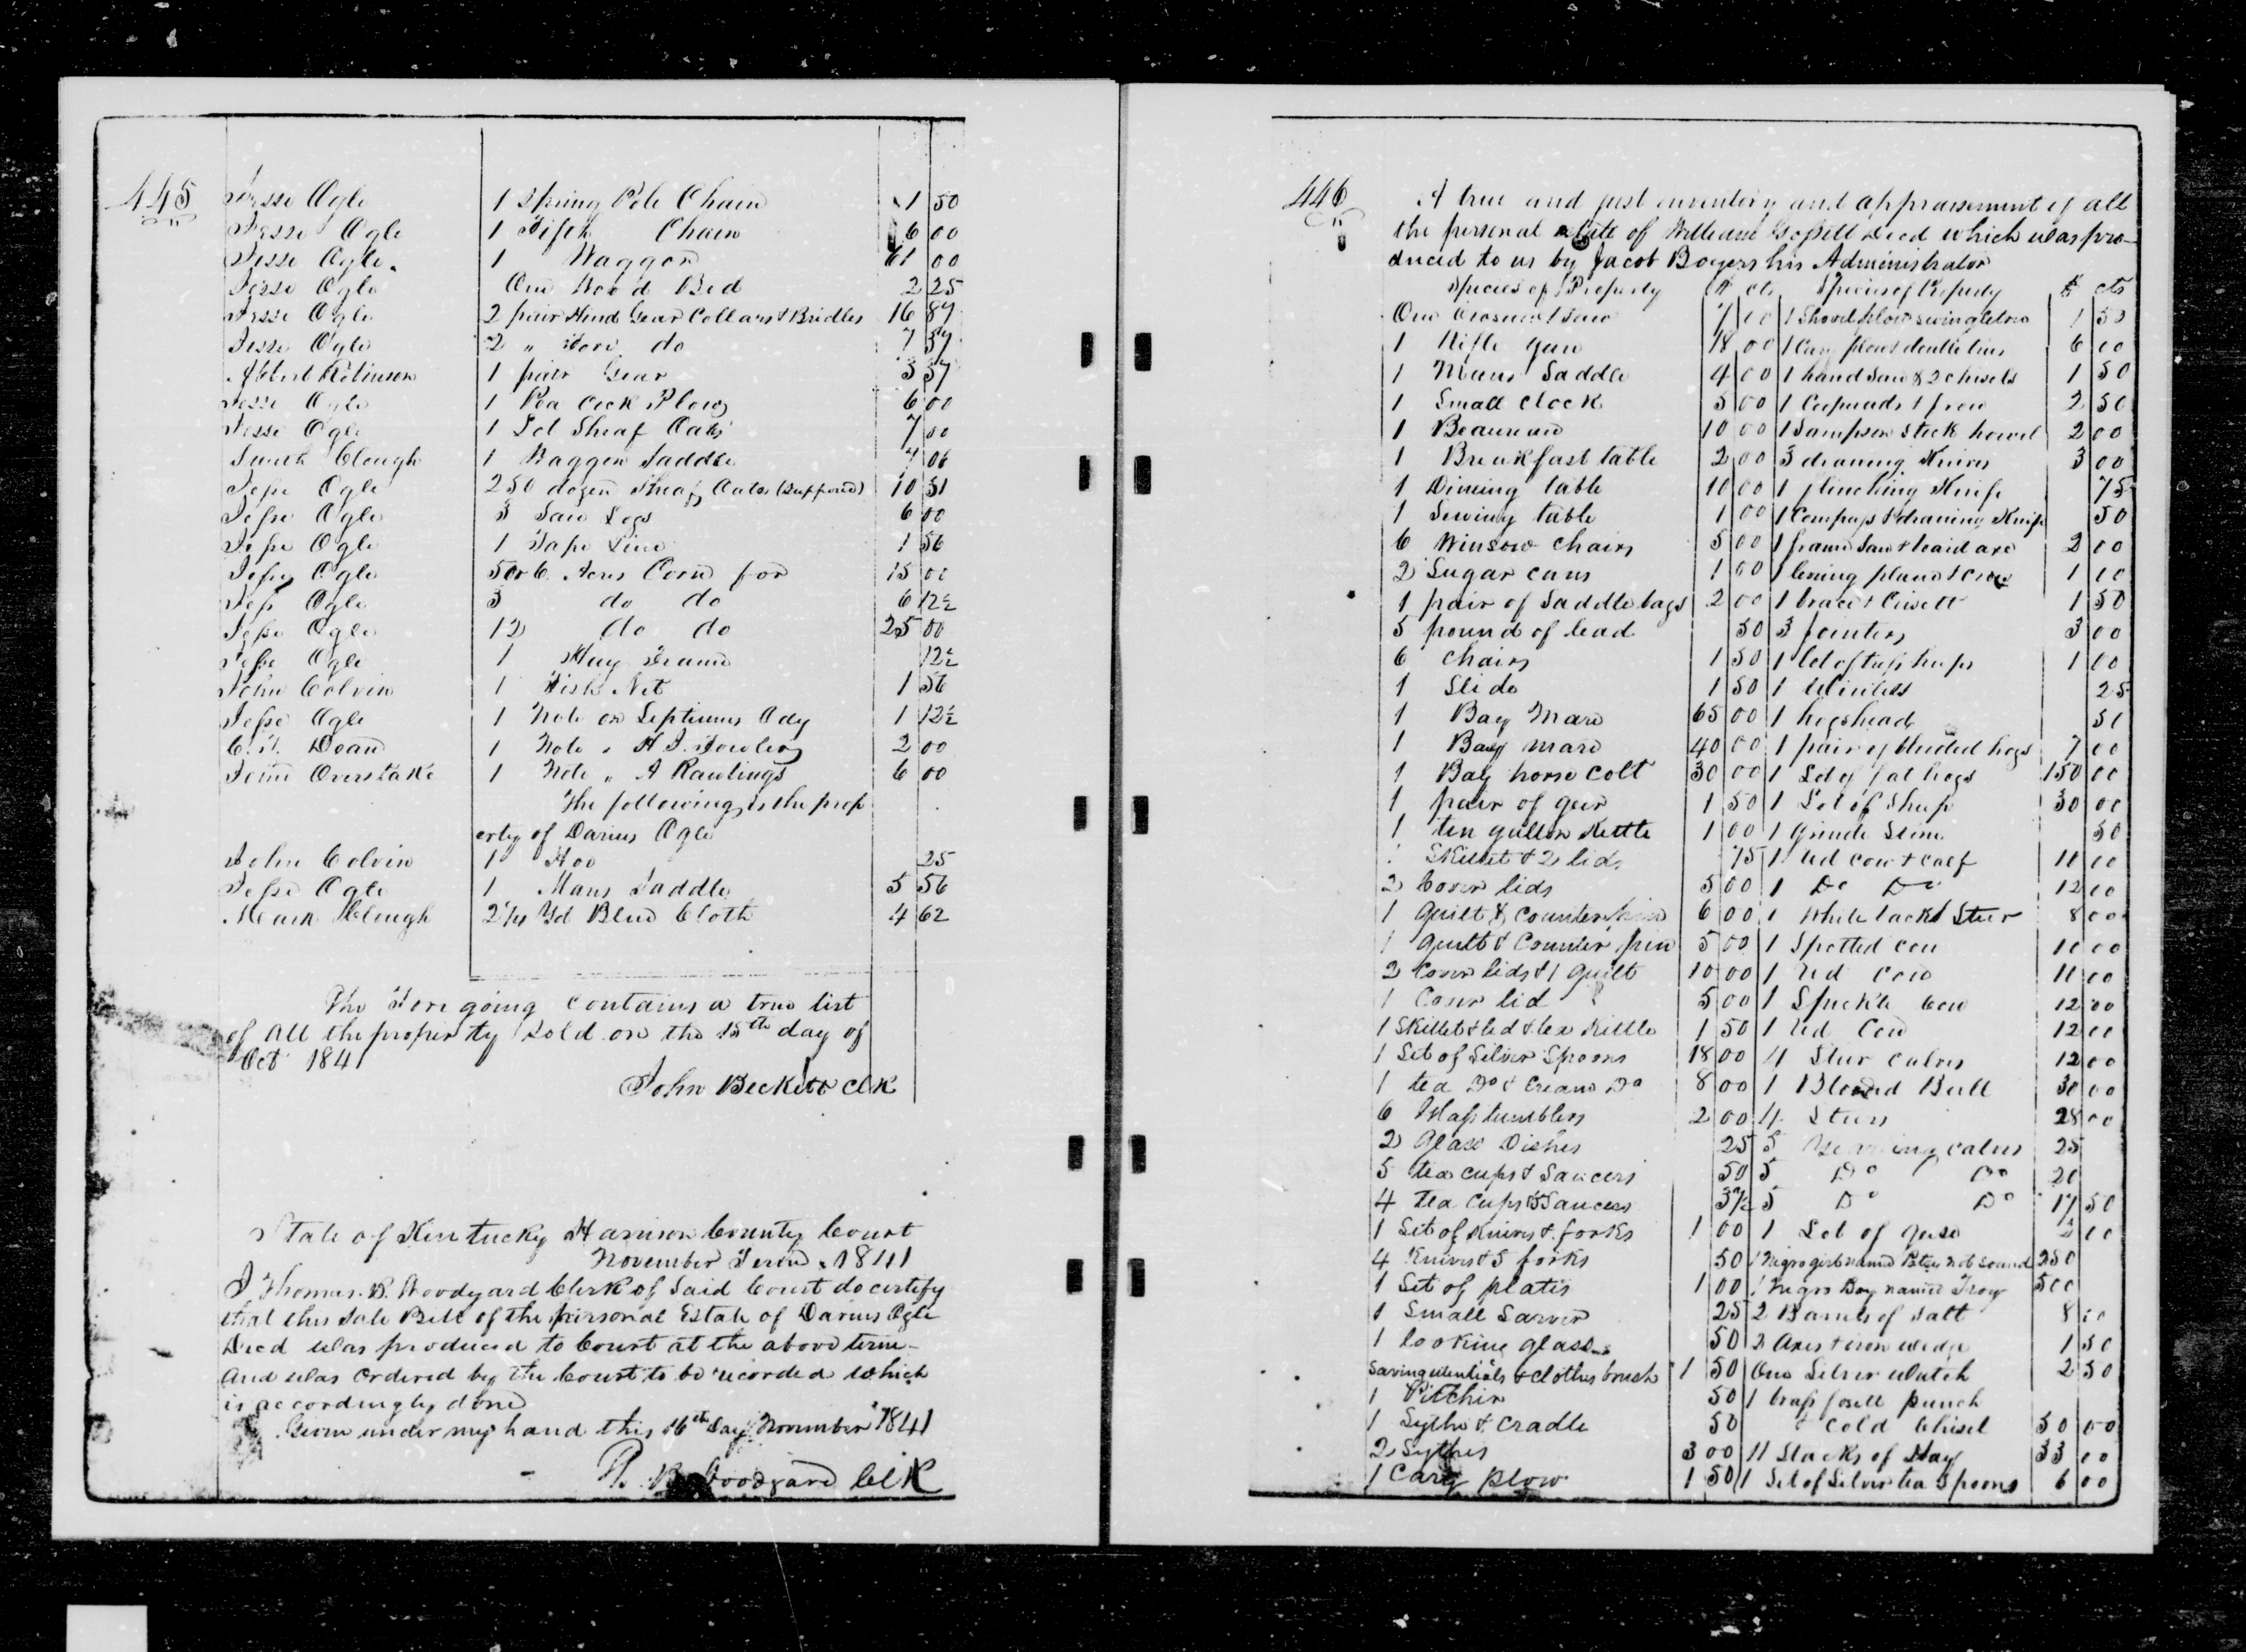 445
Jesse Ogle 1 Spring Pole Chain 1 50
Jesse Ogle 1 Fifth Chain 6 00
Jesse Ogle 1 Waggon 61 00
Jesse Ogle One Wood Bed 2 25
Jesse Ogle 2 pair Hind Gear Collars & Bridles 16 87
Jesse Ogle 2 " Fore do 7 37
Albert Robinson 1 pair Gear 3 37
Jesse Ogle 1 Pea Cock Plow 6 00
Jesse Ogle 1 Lot Sheaf Oats 7 00
Clough 1 Waggon Saddle
Jesse Ogle 250 dozen Sheaf Oats (Supposed) 10 31
Jesse Ogle 3 Saw Logs 6 00
Jesse Ogle 1 Tape Line 1 56
Jesse Ogle 5 or 6 Acres Corn for 15 00
Jess Ogle 3 do do 6 12½
Jesse Ogle 12 do do 25 00
Jesse Ogle 1 Hay Frame 12½
John Colvin 1 Fish Net 1 56
Jesse Ogle 1 Note on Septimus Ady 1 12½
Dean 1 Note " 2 00
John Overstake 1 Note " A Rawlings 6 00
The following is the prop
erty of Darius Ogle
John Colvin 1 Hoe 25
Jesse Ogle 1 Mans Saddle 5 56
Clough 2¼ Yd Blue Cloth 4 62
The Fore going contains a true list
of all the property sold on the 15th day of
Oct 1841
John Beckett Clk
State of Kentucky Harrison County Court
November Term 1841
I Thomas B. Woodyard Clerk of Said Court do certify
that this Sale Bill of the personal Estate of Darius Ogle
Decd was produced to Court at the above term
and was Ordered by the Court to be recorded which
is accordingly done
Given under my hand this 16th Day November 1841
Th. B. Woodyard Clk
446
A true and just inventory and appraisement of all
the personal estate of William Gossett Decd which was pro
duced to us by Jacob Boyers his Administrator
Species of Property $ cts Species of Property $ cts
One Crosscut Saw 7 00 1 Shovel plow swingletree 1 50
1 Rifle gun 18 00 1 Cary plow & double tree 6 00
1 Mans Saddle 4 00 1 hand Saw & 2 chisels 1 50
1 Small Clock 5 00 1 froe 2 50
1 Beaureau 10 00 1 Sampson Stock howel 2 00
1 Breakfast table 2 00 3 drawing Knives 3 00
1 Dining table 10 00 1 flinching Knife 75
1 Sewing table 1 00 1 Compass & drawing Knife 50
6 Winsow Chairs 5 00 1 frame Saw & broad axe 2 00
2 Sugar cans 1 00 1 plane & Croze 1 00
1 pair of Saddle bags 2 00 1 brace & 1 50
5 pound of lead 50 3 Jointers 3 00
6 Chairs 1 50 1 lot of truss hoops 1 00
1 Slide 1 50 1 25
1 Bay Mare 65 00 1 hogshead 50
1 Bay mare 40 00 1 pair of blooded hogs 7 00
1 Bay horse Colt 30 00 1 Lot of fat hogs 150 00
1 pair of gear 1 50 1 Lot of Sheep 30 00
1 ten gallon Kettle 1 00 1 Grind Stone 50
1 Skillet & 2 lids 75 1 Red cow & calf 11 00
2 Cover lids 5 00 1 Do Do 12 00
1 Quilt & Counterpin 6 00 1 White back Steer 8 00
1 Quilt & Counter pin 5 00 1 Spotted cow 10 00
2 Cover lids & 1 Quilt 10 00 1 Red Cow 11 00
1 Cover lid 5 00 1 Speckle Cow 12 00
1 Skillet & lid & tea Kittle 1 50 1 Red Cow 12 00
1 Set of Silver Spoons 18 00 4 Steer Calves 12 00
1 tea Do & Cream Do 8 00 1 Blooded Bull 30 00
6 Glass tumblers 2 00 4 Steers 28 00
2 Glass Dishes 25 5 Yearling Calves 25
5 tea Cups & Saucers 50 5 Do Do 20
4 tea Cups & Saucers 37½ 5 Do Do 17 50
1 Set of Knives & forks 1 00 1 Lot of Geese 2 00
4 Knives & 5 forks 50 1 Negro girl named Betsy not sound 250
1 Set of plates 1 00 1 Negro Boy named Troy 500
1 Small Sarver 25 2 Barrels of Salt 8 00
1 looking glass 50 2 Axes & iron wedge 1 50
Saving utentials & clothes brush 1 50 One Silver Watch 2 50
1 Pitcher 50 1 brass punch
1 Sythe & Cradle 50 & Cold Chisel 50 00
2 Sythes 3 00 11 Stacks of Hay 33 00
1 Cary Plow 1 50 1 Set of Silver tea Spoons 6 00